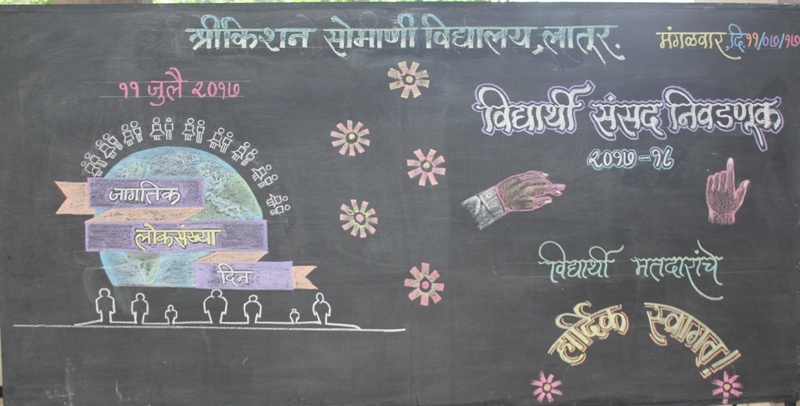 श्रीकिशन सोमाणी विद्यालय, लातूर.
मंगळवार, दि. ११/०७/१७
११ जुलै २०१७
जागतिक
लोकसंख्या
दिन
विद्यार्थी संसद निवडणूक
२०१७-१८
विद्यार्थी मतदारांचे
हार्दिक स्वागत!